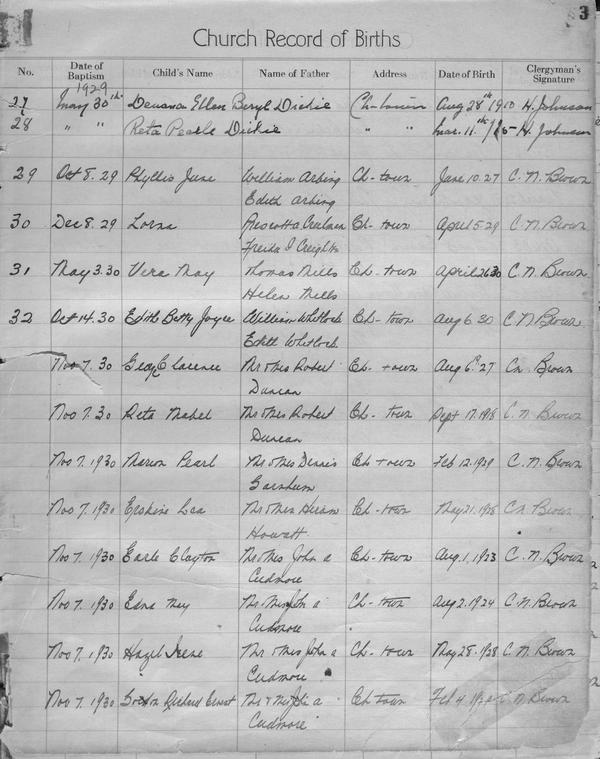 3
Church Record of Births
No. Date of Baptism Child's Name Name of Father Address Date of Birth Clergyman's Signature
1929
27 May 30th Ellen Beryl Dickie Ch-town Aug 28th 19 H. Johnson
28 " " Reta Pearle Dickie " " Mar. 11th H. Johnson
29 Oct 8. 29 Phyllis June William Arbing Ch-town June 10. 27 C. N. Brown
Edith Arbing
30 Dec 8. 29 Lorna Ch-town April 5-29 C. N. Brown
Freida I Creighton
31 May 3. 30 Vera May Thomas Mills Ch-town April 26 30 C. N. Brown
Helen Mills
32 Oct 14. 30 Edith Betty Joyce William Whitlock Ch-town Aug 6 30 C. N. Brown
Edith Whitlock
Nov 7. 30 Clarence Mr & Mrs Robert Ch-town Aug 6. 27 C. N. Brown
Duncan
Nov 7. 30 Reta Mabel Mr & Mrs Robert Ch-town Sept 17. C. N. Brown
Duncan
Nov 7. 1930 Marion Pearl Mr & Mrs Dennis Ch-town Feb 12. 1929 C. N. Brown
Garnhum
Nov 7. 1930 Erskine Lea Mr & Mrs Hiram Ch-town May 21. C. N. Brown
Howatt
Nov 7. 1930 Earle Clayton Mr & Mrs John A Ch-town Aug. 1, 1923 C. N. Brown
Cudmore
Nov 7. 1930 Edna May Mr & Mrs John A Ch-town Aug 2. 1924 C. N. Brown
Cudmore
Nov 7. 1930 Hazel Irene Mr & Mrs John A Ch-town May 28. 1928 C. N. Brown
Cudmore
Nov 7. 1930 Gordon Richard Ernest Mr & Mrs John A Ch-town Feb 4 C. N. Brown
Cudmore